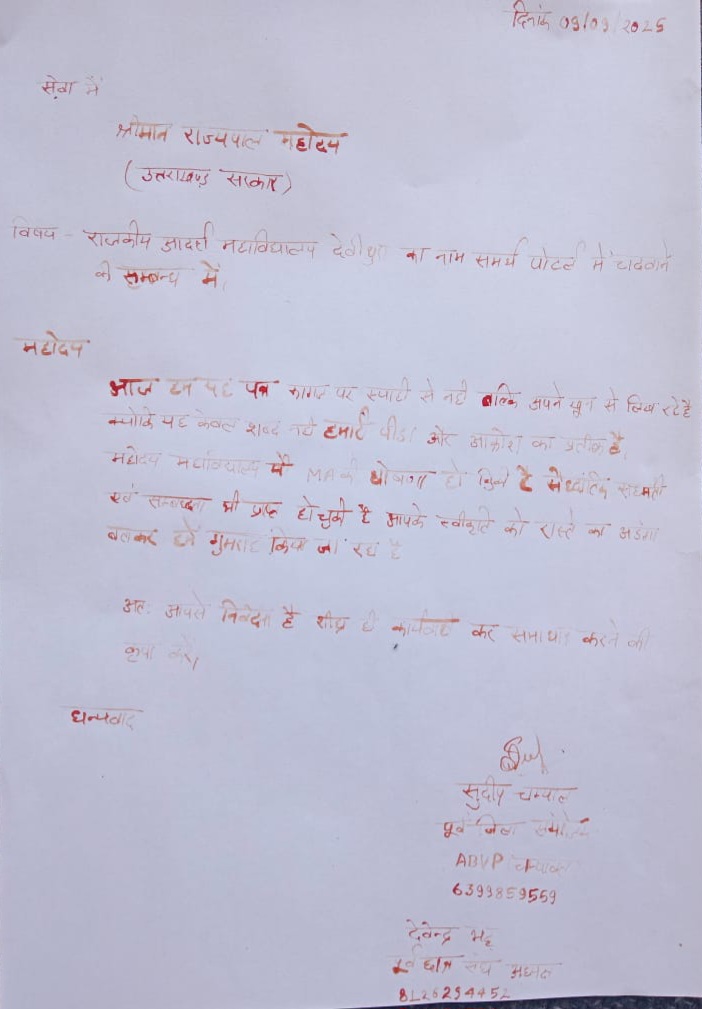 दिनांक 09/09/2025
सेवा में
श्रीमान राज्यपाल महोदय
(उत्तराखण्ड सरकार)
विषय - राजकीय आदर्श महाविद्यालय देवीधुरा का नाम समर्थ पोर्टल में चढवाने
के सम्बन्ध में।
महोदय
आज हम यह पत्र कागज पर स्याही से नही बल्कि अपने खून से लिख रहे है
क्योकि यह केवल शब्द नही हमारी पीडा और आक्रोश का प्रतीक है,
महोदय महाविद्यालय में MA की घोषणा हो चुकी है सैध्दांतिक सहमती
एवं सम्बध्दता भी प्राप्त हो चुकी है आपके स्वीकृति को रास्ते का अडंगा
बताकर हमें गुमराह किया जा रहा है
अतः आपसे निवेदन है शीघ्र ही कार्यवाही कर समाधान करने की
कृपा करें,
धन्यवाद
सुदीप चम्याल
पूर्व जिला संयोजक
ABVP चम्पावत
6399859559
देवेन्द्र भट्ट
पूर्व छात्र संघ अध्यक्ष
8126294452